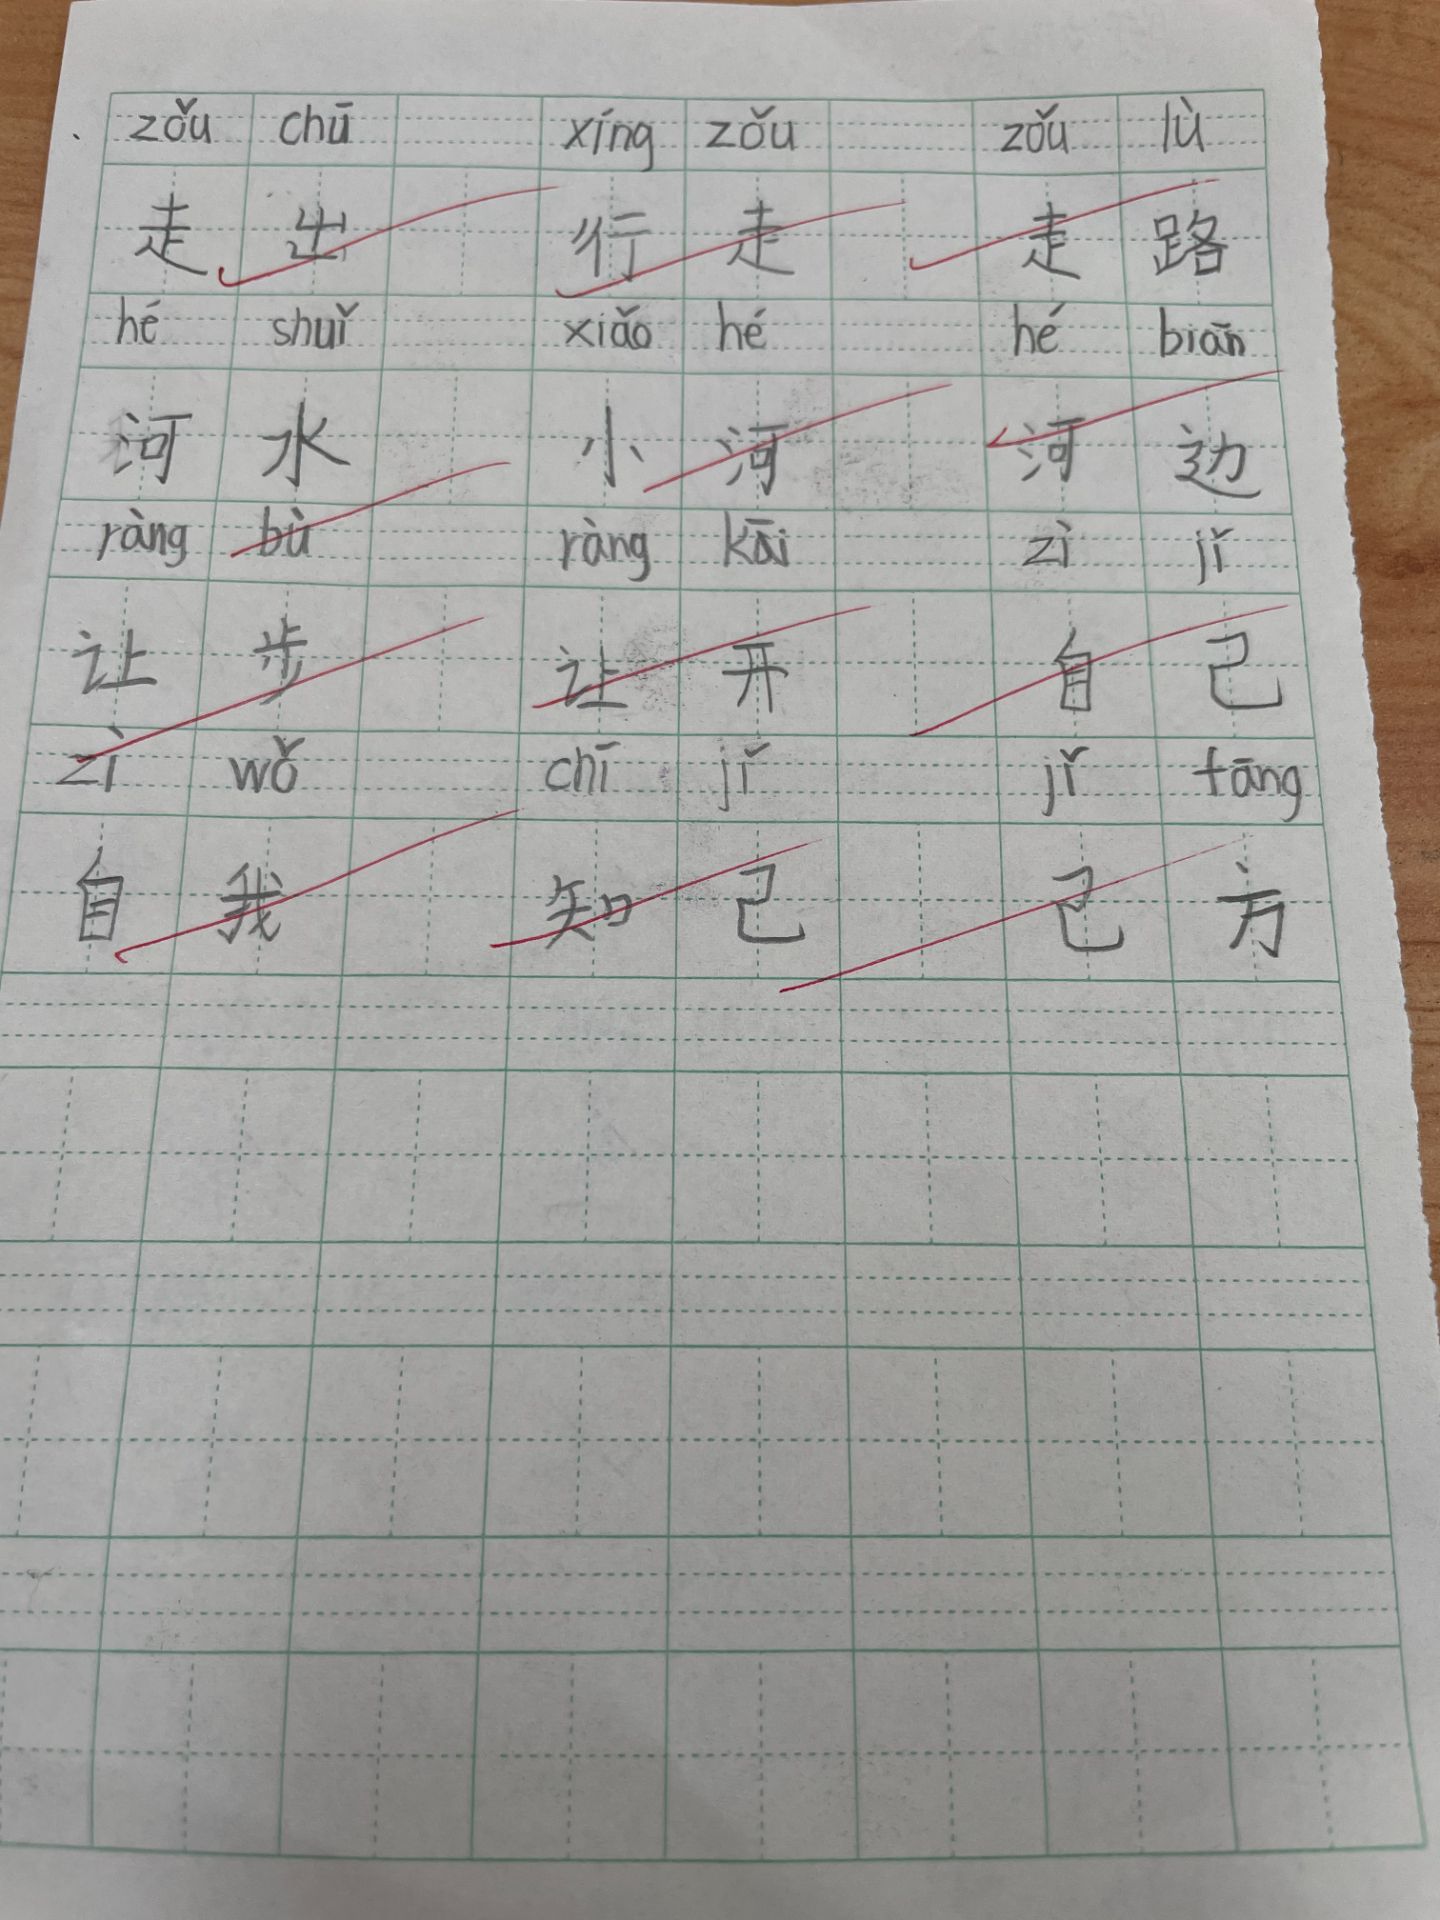 zǒu chū xíng zǒu zǒu lù
走出 行走 走路
hé shuǐ xiǎo hé hé biān
河水 小河 河边
ràng bù ràng kāi zì jǐ
让步 让开 自己
zì wǒ chī jǐ jǐ fāng
自我 知己 己方